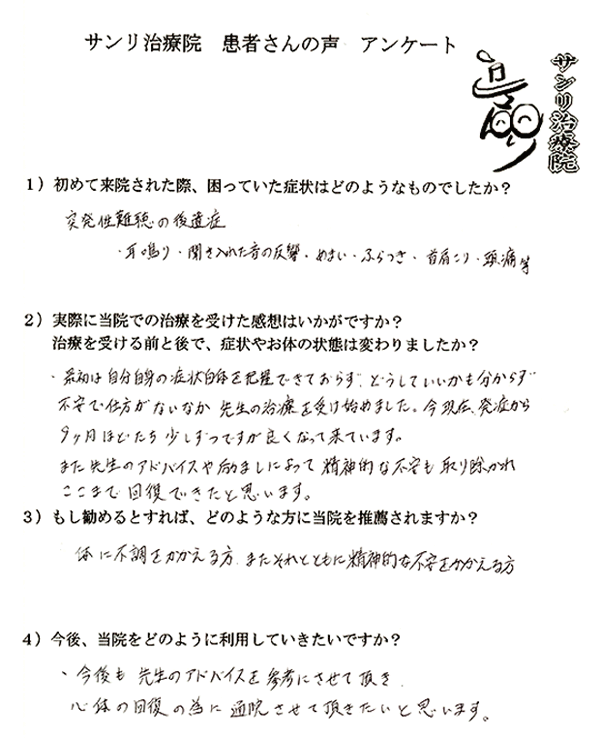 サンリ治療院　患者さんの声　アンケート
サンリ治療院
1）初めて来院された際、困っていた症状はどのようなものでしたか？
突発性難聴の後遺症
・耳鳴り・聞き入れた音の反響・めまい・ふらつき・首肩こり・頭痛等
2）実際に当院での治療を受けた感想はいかがですか？
治療を受ける前と後で、症状やお体の状態は変わりましたか？
・最初は自分自身の症状自体を把握できておらず、どうしていいかも分からず
不安で仕方がないなか 先生の治療を受け始めました。今現在、発症から
9ヶ月ほどたち 少しずつですが良くなって来ています。
また先生のアドバイスや励ましによって 精神的な不安も 取り除かれ
ここまで 回復できたと思います。
3）もし勧めるとすれば、どのような方に当院を推薦されますか？
体に不調をかかえる方、またそれとともに精神的な不安をかかえる方
4）今後、当院をどのように利用していきたいですか？
・今後も 先生のアドバイスを 参考にさせて頂き
心体の回復の為に 通院させて頂きたいと思います。